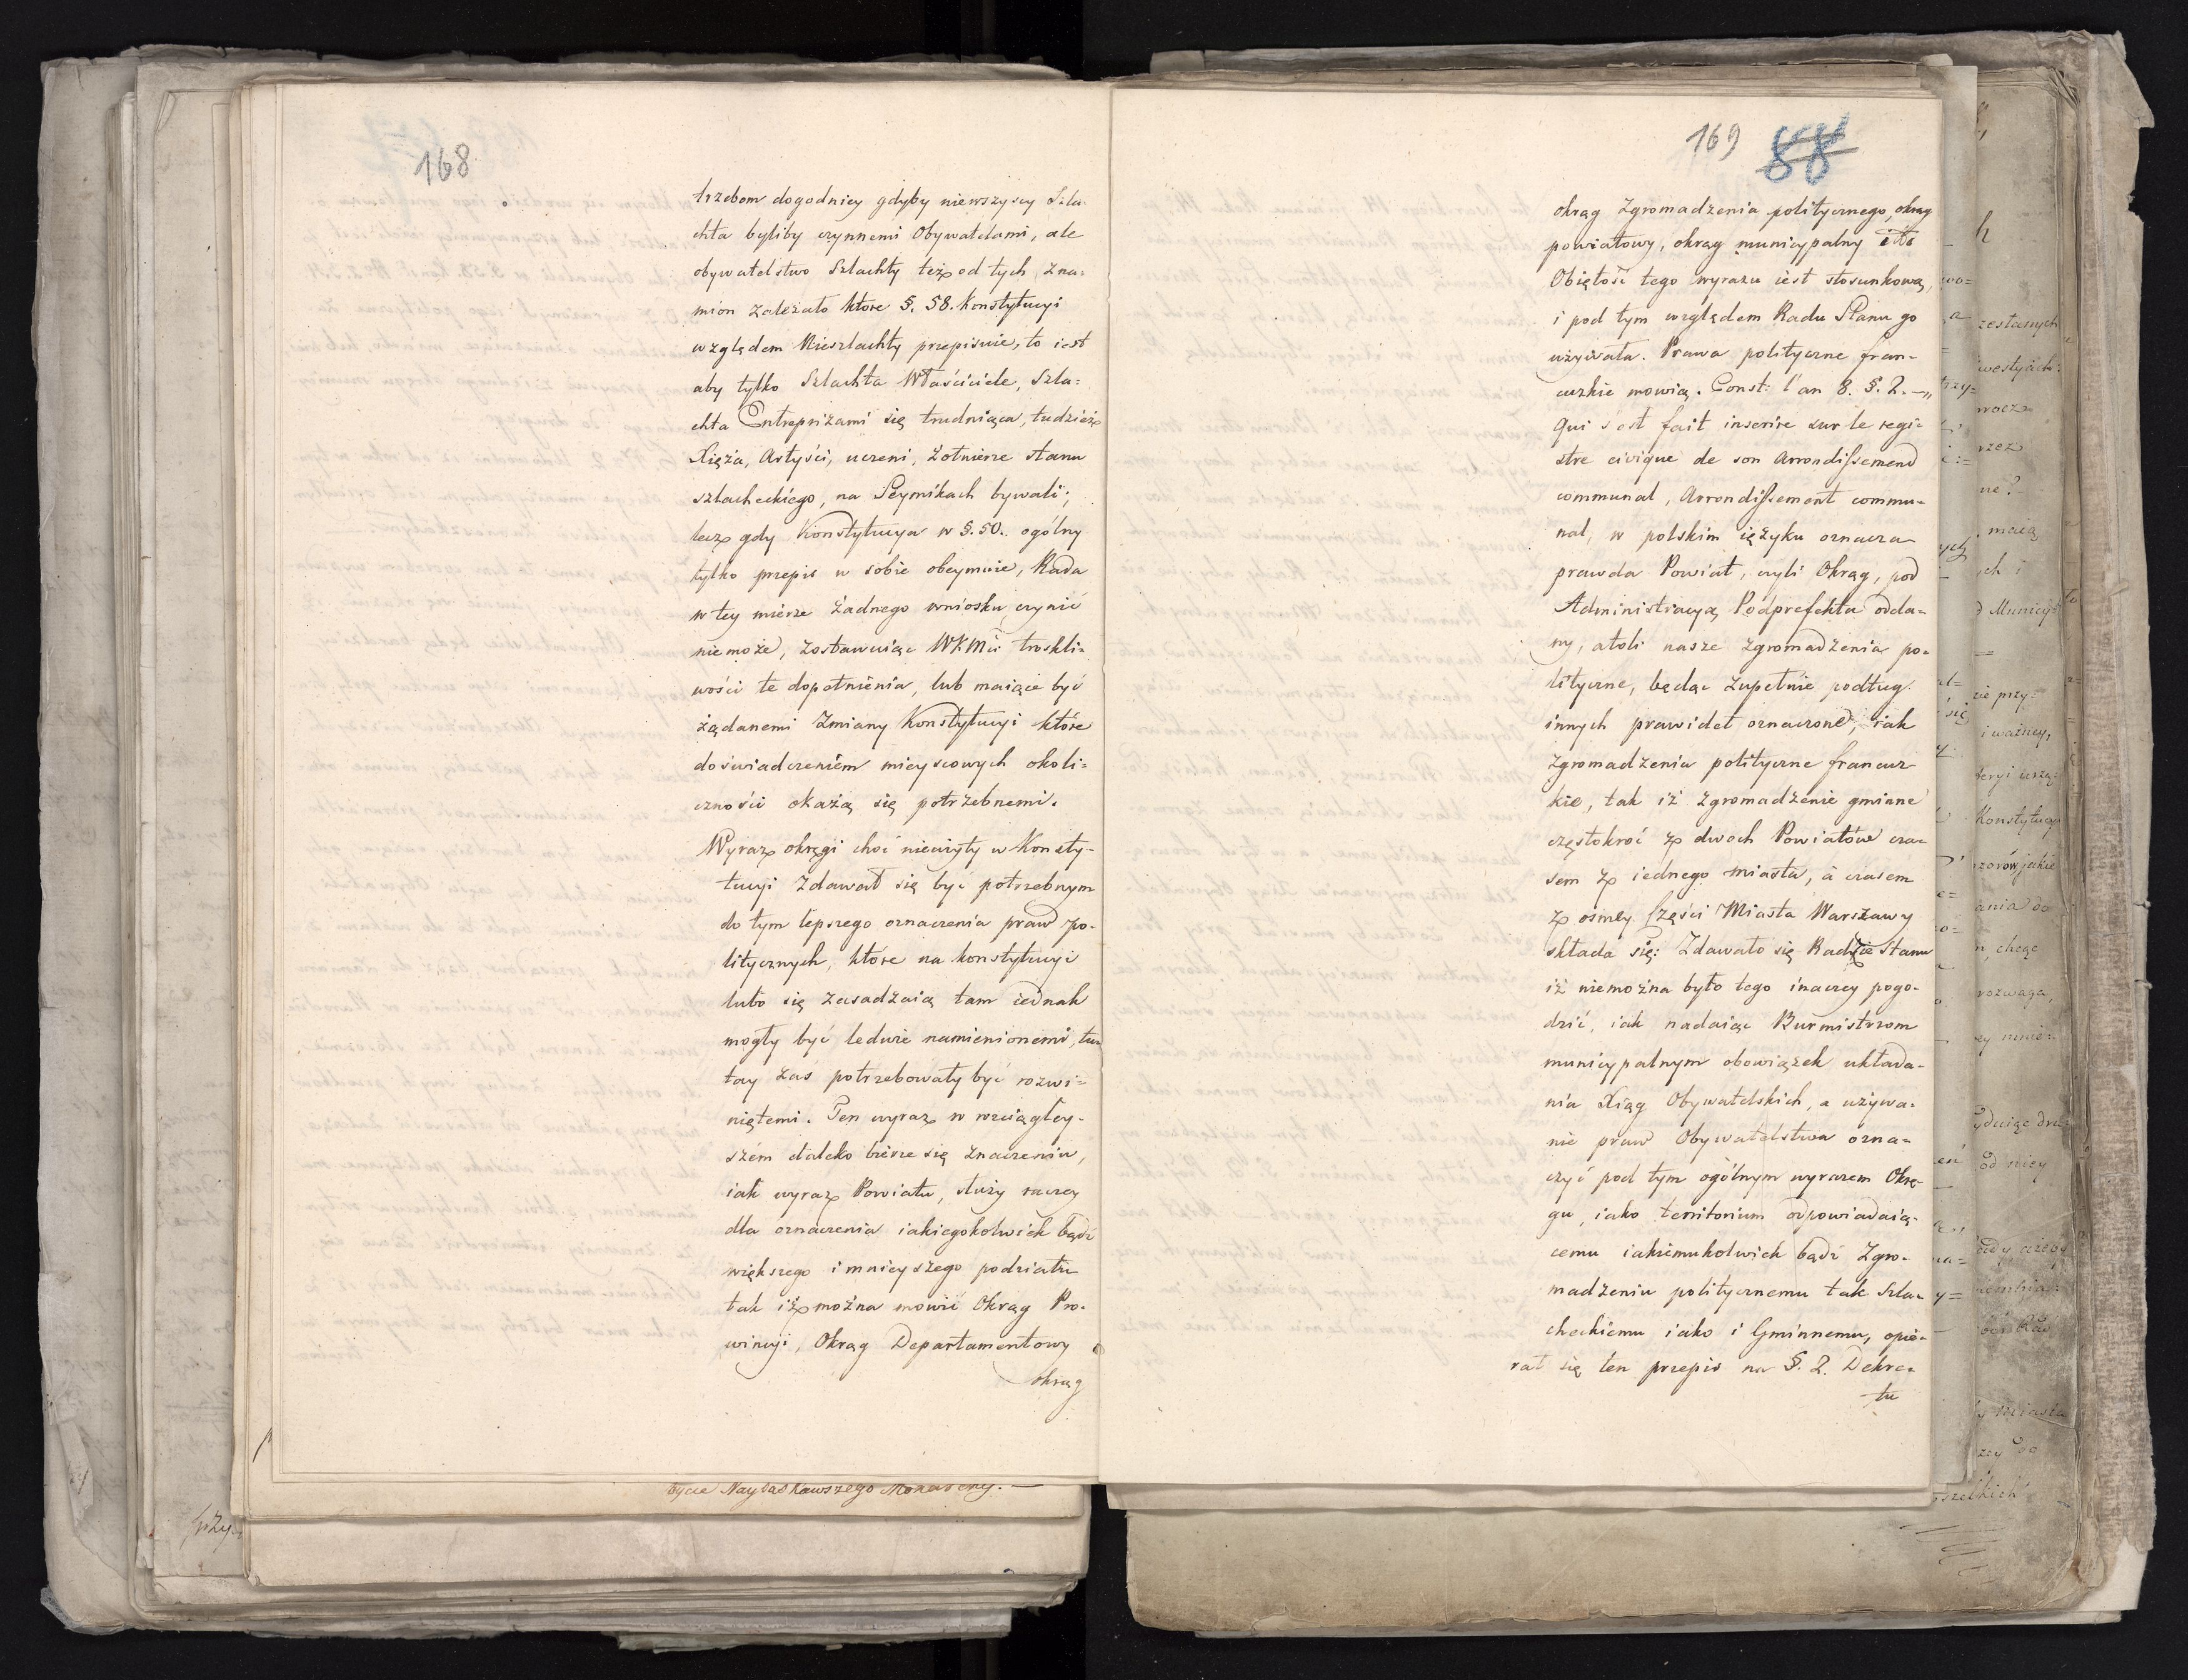 168
trzebom dogodniey gdyby niewszyscy Szla-
chta byliby czynnemi Obywatelami, ale
obywatelstwo Szlachty też od tych zna-
mion zależało które §. 58. Konstytucyi
względem Nieszlachty przepisuie, to iest
aby tylko Szlachta Właściciele, Szla-
chta Entreprizami się trudniąca, tudzież
Xięża, Artyści, uczeni, Żołnierze stanu
szlacheckiego, na Seymikach bywali;
lecz gdy Konstytucya w §. 50. ogólny
tylko przepis w sobie obeymuie, Rada
w tey mierze żadnego wniosku czynić
niemoże, zostawuiąc WKMci troskli-
wości te dopołnienia, lub maiące być
żądanemi Zmiany Konstytucyi które
doświadczeniem mieyscowych okoli-
czności okażą się potrzebnemi.
Wyraz okręgi choć nieużyty w Konsty-
tucyi zdawał się być potrzebnym
do tym lepszego oznaczenia praw po-
litycznych, które na konstytucyi
lubo się zasadzaią tam iednak
mogły być ledwie namienionemi, tu-
tay zas potrzebowały być rozwi-
niętemi. Ten wyraz w rozciągley-
szém daleko bierze się znaczeniu,
iak wyraz Powiatu, służy raczey
dla oznaczenia iakiegokolwiek bądź
większego i mnieyszego podziału
tak iż można mówić Okrąg Pro-
wincyi, Okrąg Departamentowy
okrąg
bycie Nayłaskawszego Monarchy. —
169 88
okrąg Zgromadzenia politycznego, okrąg
powiatowy, okrąg municypalny itd
Obiętość tego wyrazu iest stosunkową,
i pod tym względem Rada Stanu go
używała. Prawa polityczne fran-
cuzkie mowią. Const: l'an 8. §. 2. — „
Qui s'est fait inscrire sur le regi-
stre civique de son Arrondissemend
communal, Arrondissement commu-
nal, w polskim ięzyku oznacza
prawda Powiat, czyli Okrąg, pod
Administracyą Podprefekta odda-
ny, atoli nasze zgromadzenia po-
lityczne, będąc zupełnie podług
innych prawideł oznaczone, iak
Zgromadzenia polityczne francuz-
kie, tak iż zgromadzenie gminne
częstokroć z dwoch Powiatów cza-
sem z iednego miasta, a czasem
z osmey Części Miasta Warszawy
składa się: Zdawało się Radzie Stanu
iż niemożna było tego inaczey pogo-
dzić, iak nadaiąc Burmistrzom
municypalnym obowiązek układa-
nia Xiąg Obywatelskich, a używa-
nie praw Obywatelstwa ozna-
czyć pod tym ogólnym wyrazem Okrę-
gu, iako territorium odpowiadaią-
cemu iakiemukolwiek bądź Zgro-
madzeniu politycznemu tak Szla-
checkiemu iako i Gminnemu, opie-
rał się ten przepis na §. 2. Dekre-
tu